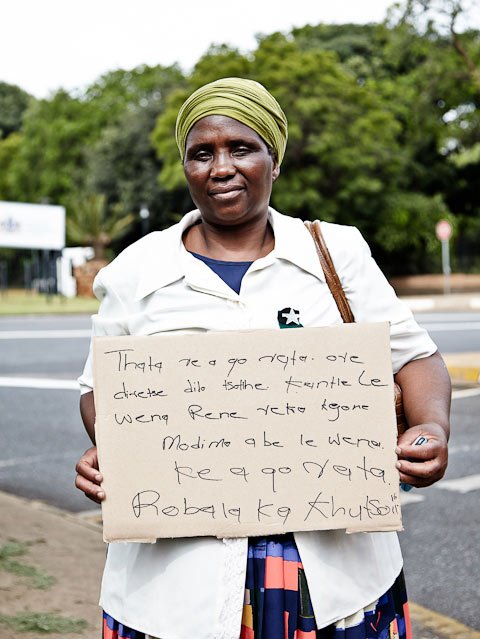 Thata re a go rata. ore
diretse dilo tsothe Kantle Le
wena Rene retra kgone
Modimo a be le wena.
Ke a go rata.
Robala ka Khutso!!